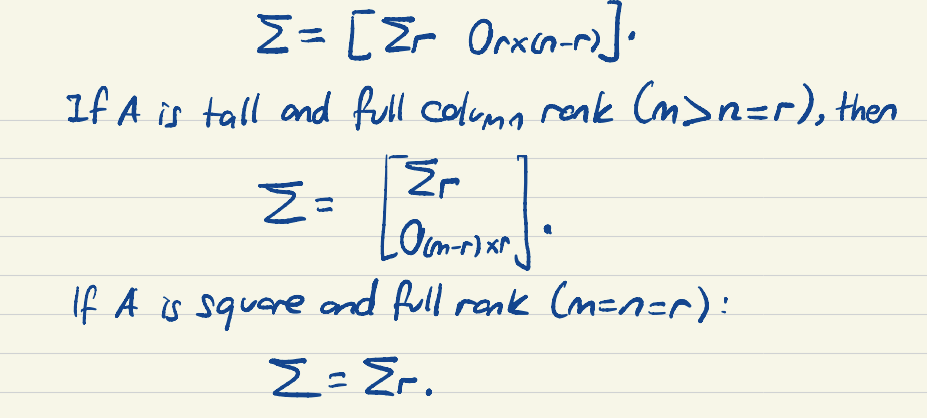 Σ = [Σr 0r×(n-r)].
If A is tall and full column rank (m>n=r), then
Σ = [Σr
0(m-r)×r].
If A is square and full rank (m=n=r):
Σ = Σr.